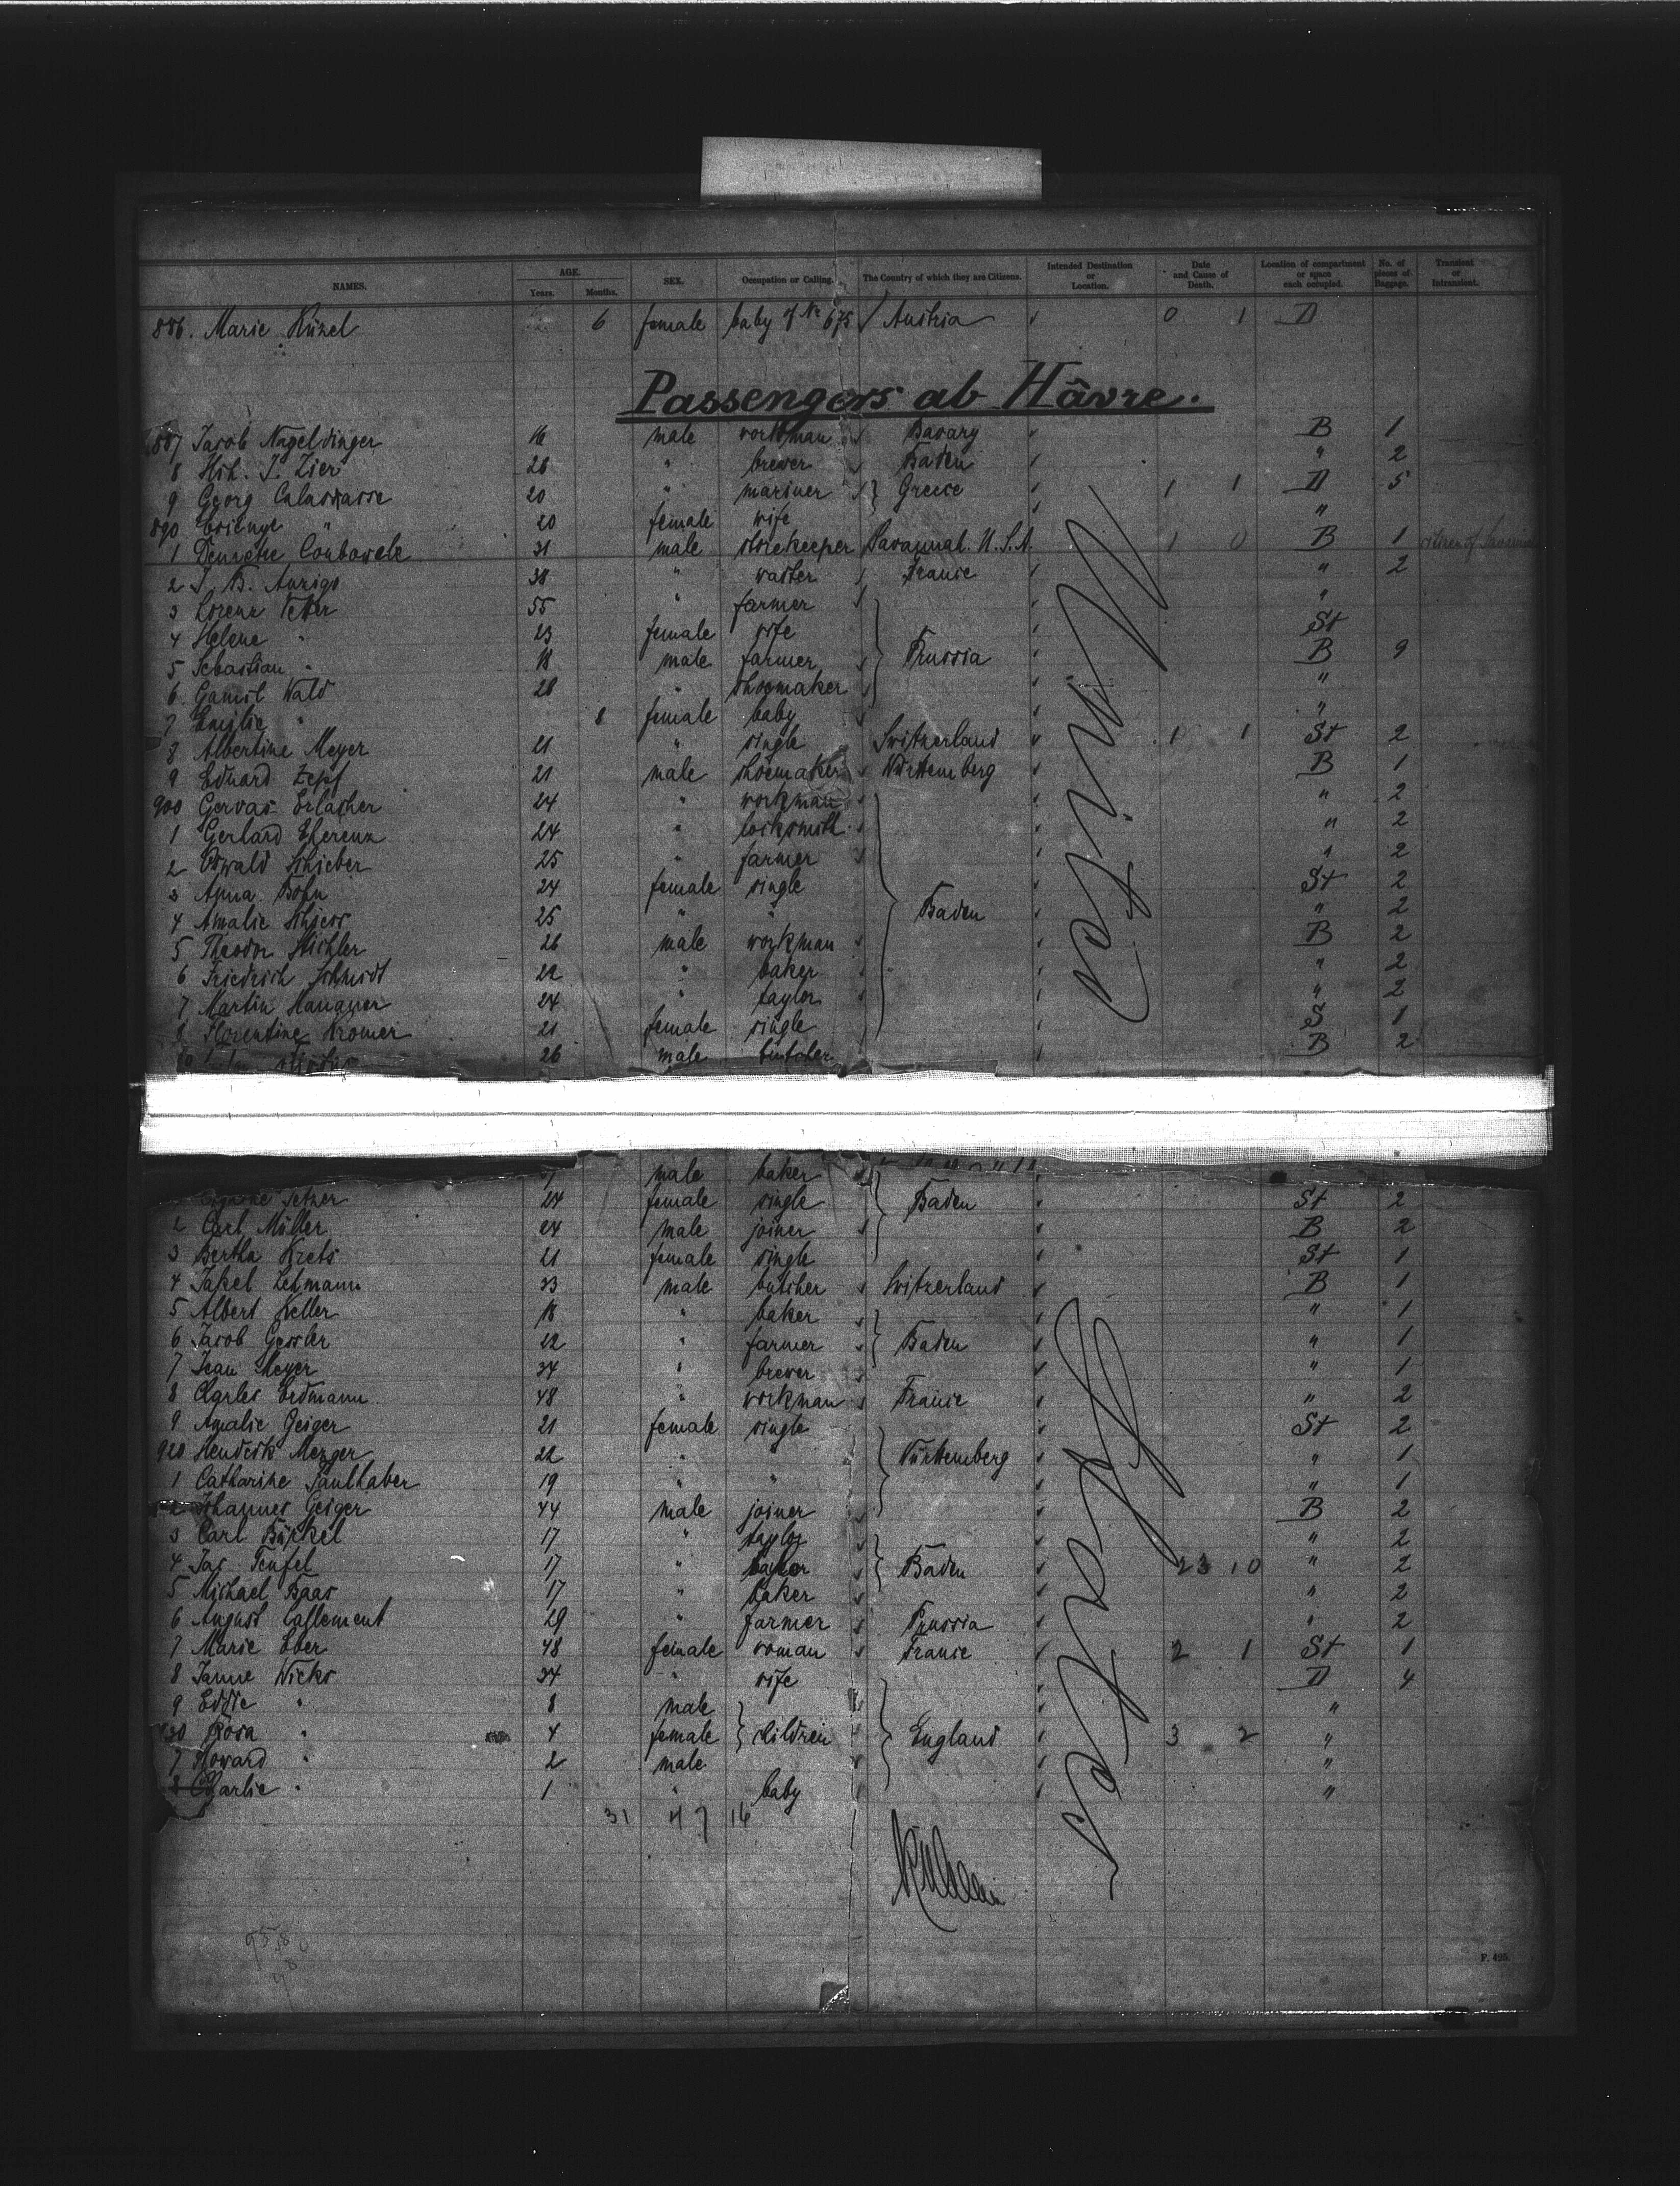 NAMES. AGE. Years. Months. SEX. Occupation or Calling. The Country of which they are Citizens. Intended Destination or Location. Date and Cause of Death. Location of compartment or space each occupied. No. of pieces of Baggage. Transient or Intransient.
886. Marie Künel 6 female baby of No 675 Austria 0 1 D
Passengers ab Hâvre.
887 Jacob Nageldinger 16 male workman Bavary B 1
8 Hch. J. Zier 28 " brewer Baden " 2
9 Georg 20 " mariner Greece 1 1 D 5
890 " 20 female wife "
1 31 male storekeeper Savannah U.S.A. 1 0 B 1 citizen of
2 J. B. Aurigo 38 " France " 2
3 Lorenz 55 " farmer "
4 Helene " 23 female wife St
5 Sebastian " 18 male farmer Prussia B 9
6 Wald 28 " shoemaker "
7 Emilie " 8 female baby "
8 Albertine Meyer 21 " single Switzerland 1 1 St 2
9 Eduard Zepf 21 male shoemaker Württemberg B 1
900 Gervas Erlacher 24 " workman " 2
1 Gerhard Eherenz 24 " locksmith " 2
2 Oswald Schieber 25 " farmer " 2
3 Anna Bohn 24 female single St 2
4 Amalie Schiess 25 " " Baden " 2
5 Theodor Stichler 26 male workman B 2
6 Friedrich Schmidt 22 " baker " 2
7 Martin 24 " taylor " 2
8 Florentine Kromer 21 female single S 1
26 male butcher B 2
male baker
24 female single Baden St 2
2 Carl Müller 24 male joiner B 2
3 Bertha Krets 21 female single St 1
4 Jakel Lehmann 33 male butcher Switzerland B 1
5 Albert Keller 18 " baker " 1
6 Jacob Gessler 22 " farmer Baden " 1
7 Jean Meyer 34 " brewer " 1
8 Charles Erdmann 48 " workman France " 2
9 Amalie Geiger 21 female single St 2
920 Mezger 22 " " Württemberg " 1
1 Catharine Faulhaber 19 " " " 1
2 Johannes Geiger 44 male joiner B 2
3 Carl Bürkel 17 " taylor " 2
4 Jac Teufel 17 " Baden 23 10 " 2
5 Michael Baas 17 " baker " 2
6 August 29 " farmer Prussia " 2
7 Marie Eber 48 female woman France 2 1 St 1
8 Wicks 34 " wife D 4
9 Eddie " 8 male "
930 Rosa " 4 female children England 3 2 "
7 Howard " 2 male "
8 Charlie " 1 " baby "
31 47 16
F. 425.